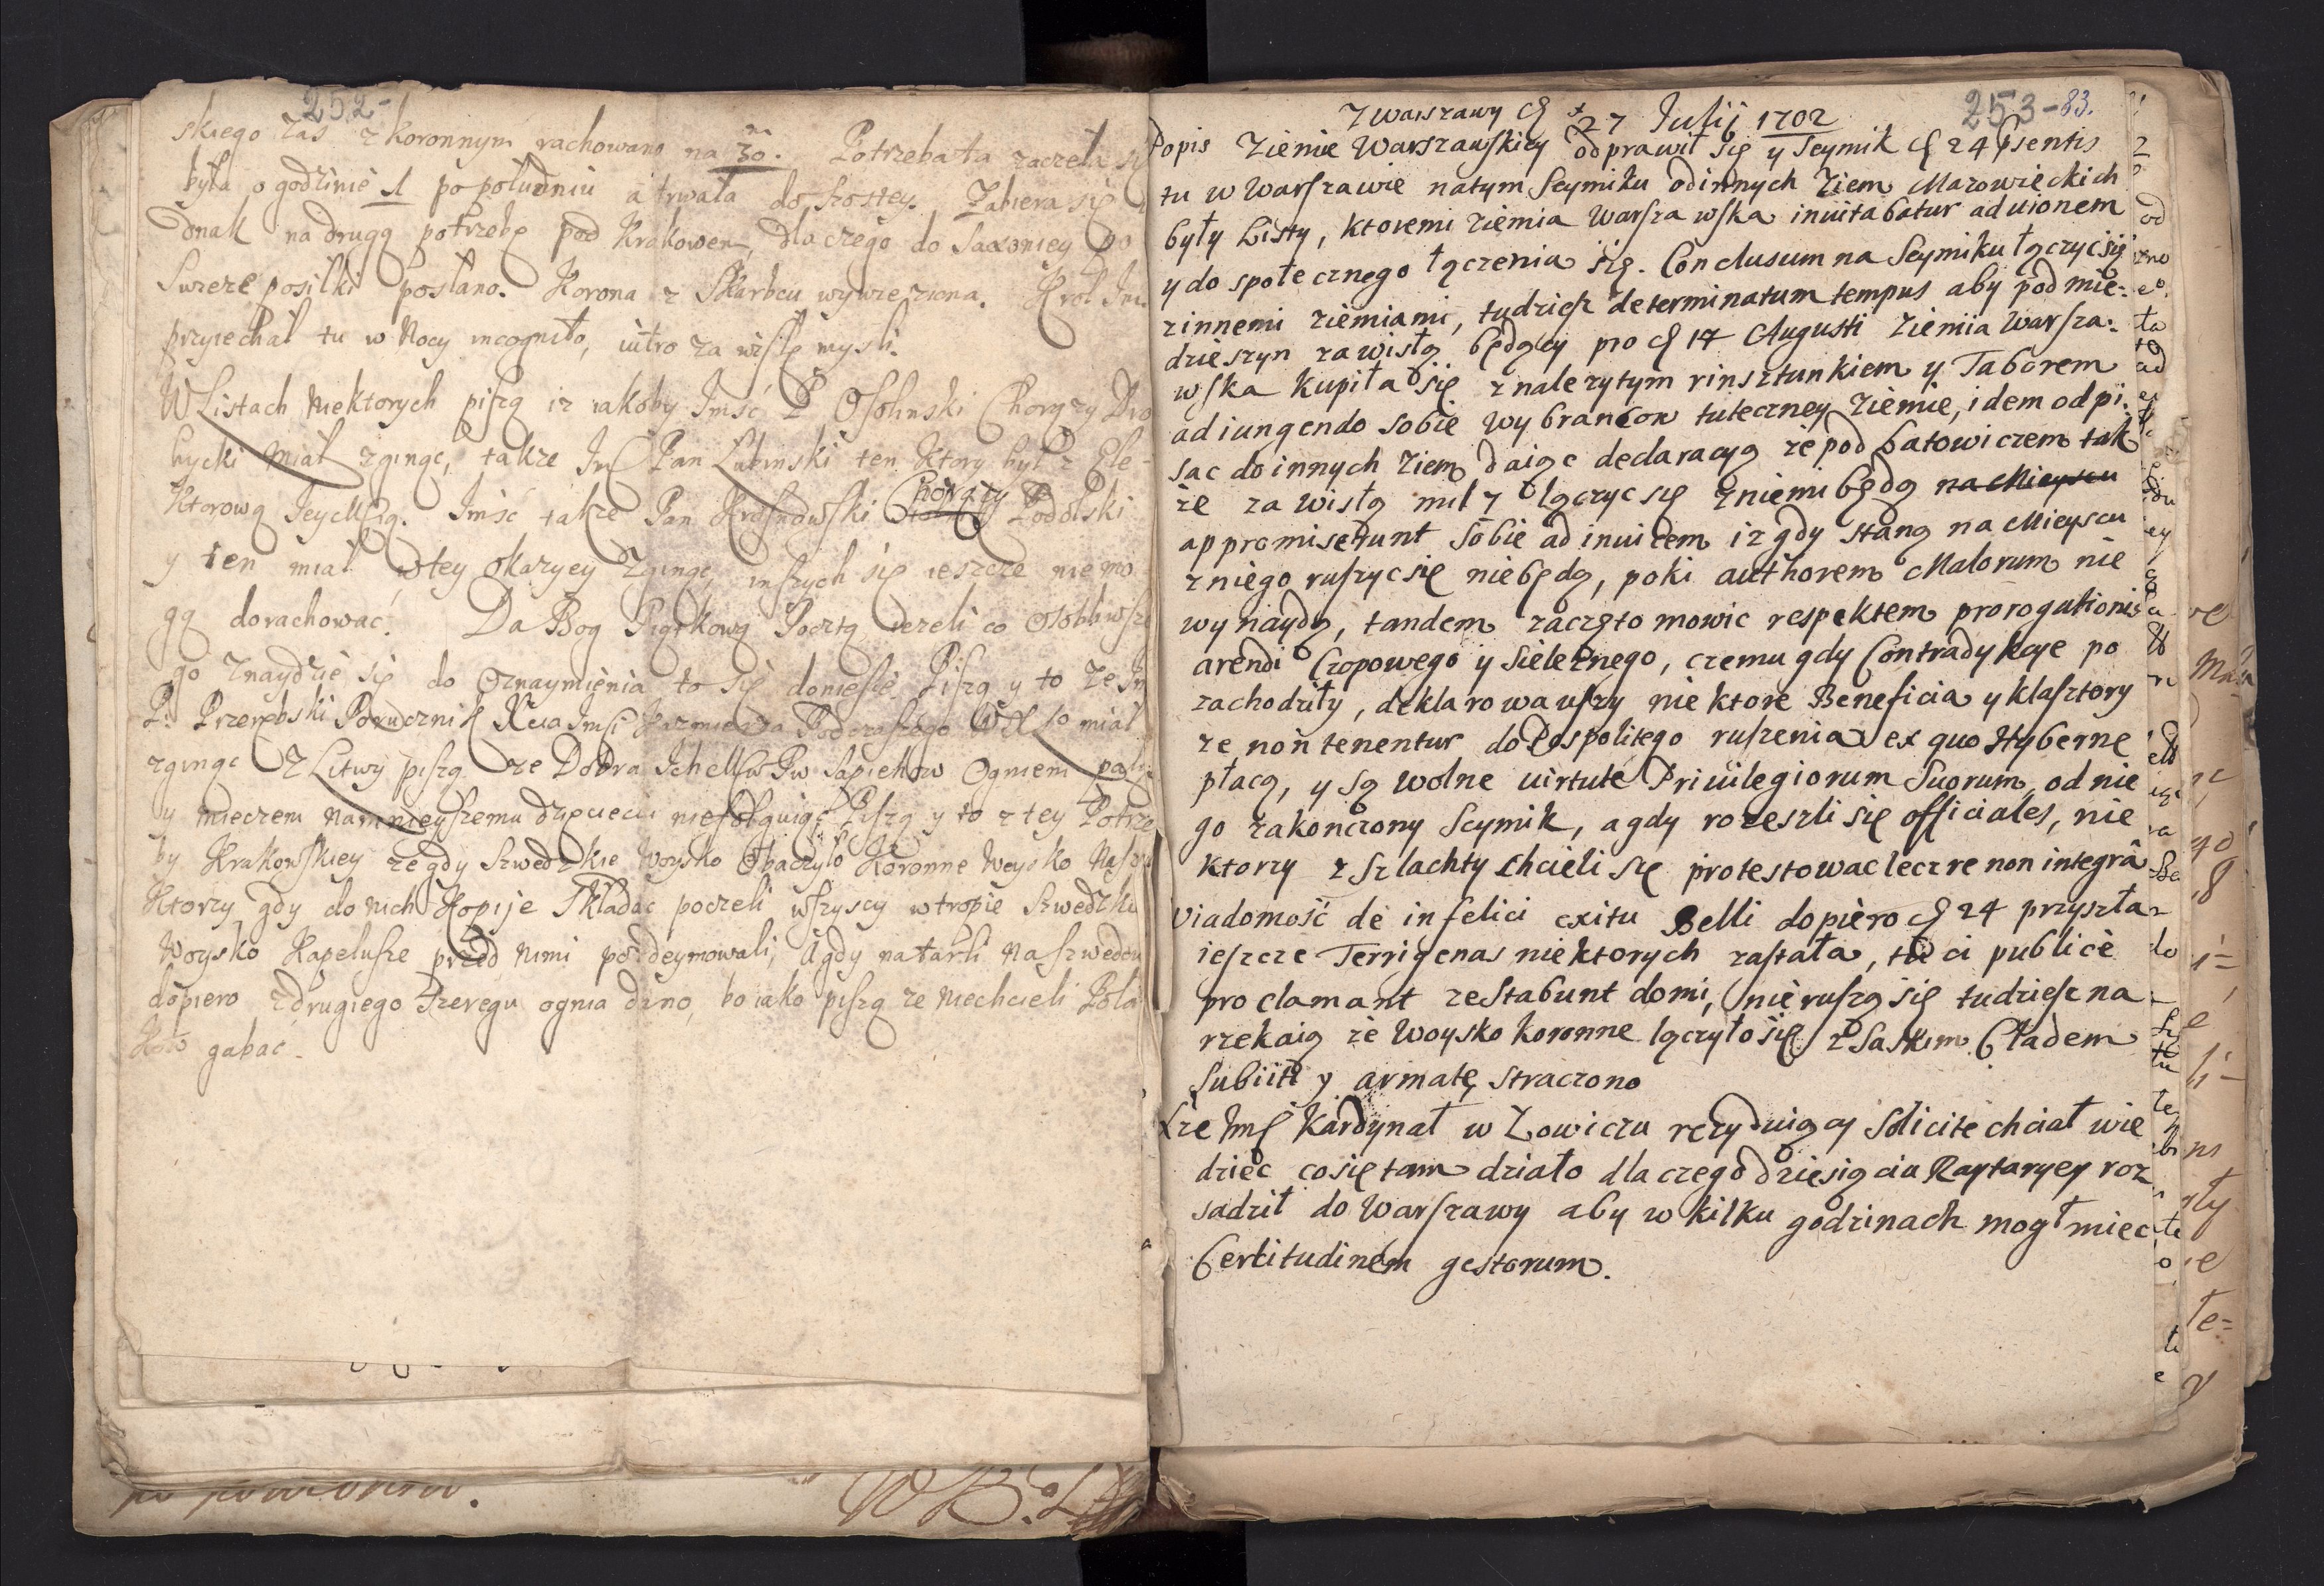 252-
skiego zas z koronnym rachowano na 30. Potrzeba ta zaczeła
była o godzinie 1 po południu a trwała do szostey. Zabiera się
dnak na drugą potrzebę pod Krakowem, dla czego do Saxoniey po
Swieże posiłki posłano. Korona z Skarbcu wywieziona. Krol Im
przyiechał tu w Nocy incognito, iutro za wisłę mysli.
W Listach niektorych piszą iz iakoby Imść P Osolinski Chorąży Dro
hycki miał zginąc, także Im Pan Lubinski ten ktory był z Ele-
ktorową Jeymscią. Imść także Pan Krosnowski Chorąży Podolski
y ten miał w tey okazyey zginąc, inszych się ieszcze nie mo
gą dorachować. Da Bog Piątkową Pocztą iezeli co osobliwsze
go znaydzie się do oznaymięnia to się doniesie. Piszą y to ze
P. Przerębski Porucznik Xcia Imści Kazimierza Podczaszego WXL to miał
zginąc Z Litwy piszą ze Dobra Ich Sapiehow Ogniem palą
y mieczem naymnieyszemu dziecieciu niefolguiąc Piszą y to z tey Potrze
by Krakowskiey ze gdy Szwedzkie Woysko obaczyło Koronne Woysko Nasze
Ktorzy gdy do nich Kopije składac poczeli wszyscy w tropie Szwedzkie
Woysko Kapelusze przed nimi pozdeymowali, A gdy natarli na szwedow
dopiero z drugiego szeregu ognia dano, bo iako piszą ze niechcieli Pola
kow gabać.
253-83.
Z Warszawy 27 Julij 1702
Popis Ziemie Warszawskiey odprawił się y Seymik 24 Psentis
tu w Warszawie natym Seymiku od innych Ziem Mazowieckich
były Listy, ktoremi ziemia Warszawska inuitabatur ad uionem
y do społecznego łączenia się. Conclusum na Seymiku łączyc się
zinnemi ziemiami, tudziesz determinatum tempus aby pod mie-
dzieszyn za wisłą będący pro 14 Augusti ziemia Warsza-
wska kupiła się z nalezytym rinsztunkiem y Taborem
adiungendo sobie wybrancow tuteczney ziemie, idem odpi-
sac do innych ziem daiąc declaracyą ze pod batowiczem tak
ze za wisłą mil 7 łączyc się z niemi będą na Mieyscu
appromiserunt sobie ad inuicem iz gdy staną na Mieyscu
z niego ruszyc się niebędą, poki authorem Malorum nie
wynaydą, tandem zaczęto mowic respektem prorogationis
arendi Czopowego y Sielęznego, czemu gdy Contradykcye po
zachodziły, deklarowawszy niektore Beneficia y klasztory
ze non tenentur do Pospolitego ruszenia ex quo Hybernę
płacą, y są wolne uirtute Priuilegiorum Suorum, od nie
go zakonczony Seymik, a gdy rozeszli się officiales, nie
ktorzy z Szlachty chcieli się protestowac lecz re non integrâ
Wiadomość de infelici exitu Belli dopiero 24 przyszła
ieszcze Terrigenas niektorych zastała, tu ci publicè
proclamant ze stabunt domi, nie ruszą się tudziesz na
rzekaią ze Woysko koronne łączyło się z Saskim Cladem
subiit y armatę stracono
Xze Im Kardynał w Łowiczu rezyduiący solicite chciał wie
dziec co się tam działo dla czego dziesiącia Raytaryey roz
sadził do Warszawy aby w kilku godzinach mogł miec
Certitudinem gestorum.